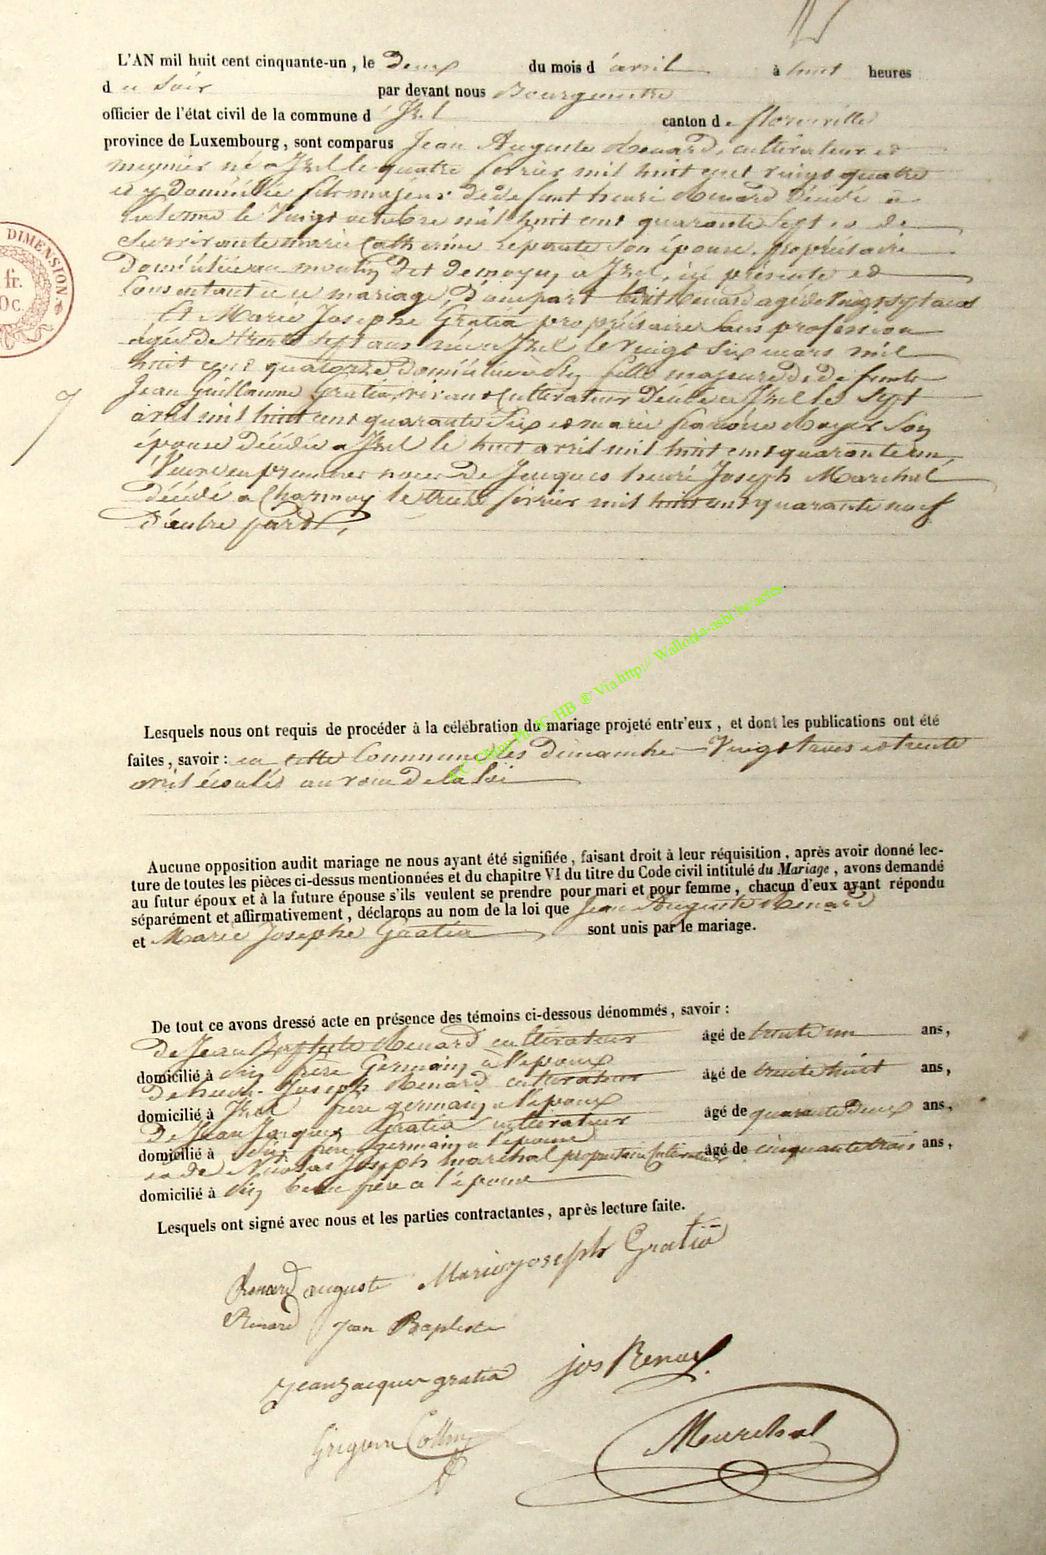 L'AN mil huit cent cinquante-un, le deux du mois d'avril à huit heures
du soir par devant nous Bourgmestre
officier de l'état civil de la commune d'Izel canton de florenville
province de Luxembourg, sont comparus Jean Auguste Renard, cultivateur et
meunier né a Izel le quatre fevrier mil huit cent vingt quatre
et y domicilié fils majeur de defunt henri Renard décédé à
le vingt octobre mil huit cent quarante sept et de
survivante marie Catherine son épouse, propriétaire
domiciliée au moulin dit à Izel, ici présente et
consentant a ce mariage, d'une part ledit Renard agé de vingt sept ans
Et Marie Josephe Gratia propriétaire sans profession
agée de trente sept ans née a Izel le vingt six mars mil
huit cent quatorze domiciliée fille majeure de defunts
Jean Guillaume Gratia, vivant cultivateur décédé a Izel le sept
avril mil huit cent quarante six et marie son
épouse décédée a Izel le huit avril mil huit cent quarante un,
Veuve en premieres noces de Jacques henri Joseph Marchal
décédé a Charmoy le treize février mil huit cent quarante neuf
d'autre part,
DIMENSION
fr.
Oc.
7
Lesquels nous ont requis de procéder à la célébration du mariage projeté entr'eux, et dont les publications ont été
faites, savoir : en cette Commune les dimanche vingt trois et trente
écoulés au vœu de la loi
Via http:// Wallonia-asbl be/actes
Aucune opposition audit mariage ne nous ayant été signifiée, faisant droit à leur réquisition, après avoir donné lec-
ture de toutes les pièces ci-dessus mentionnées et du chapitre VI du titre du Code civil intitulé du Mariage, avons demandé
au futur époux et à la future épouse s'ils veulent se prendre pour mari et pour femme, chacun d'eux ayant répondu
séparément et affirmativement, déclarons au nom de la loi que Jean Auguste Renard
et Marie Josephe Gratia sont unis par le mariage.
De tout ce avons dressé acte en présence des témoins ci-dessous dénommés, savoir :
de Jean Baptiste Renard cultivateur âgé de trente un ans,
domicilié à frère Germain à l'epoux
de Joseph Renard cultivateur âgé de trente huit ans,
domicilié à Izel frère germain a l'epoux
De Jean Jacques Gratia cultivateur âgé de quarante deux ans,
domicilié à frère Germain a l'epouse
et de Nicolas Joseph marchal propriétaire Cultivateur âgé de cinquante trois ans,
domicilié à beau frère a l'épouse
Lesquels ont signé avec nous et les parties contractantes, après lecture faite.
Renard auguste Marie joseph Gratia
Renard Jean Baptiste
jean jacques gratia jos Renard
Grégoire Collin Marchal